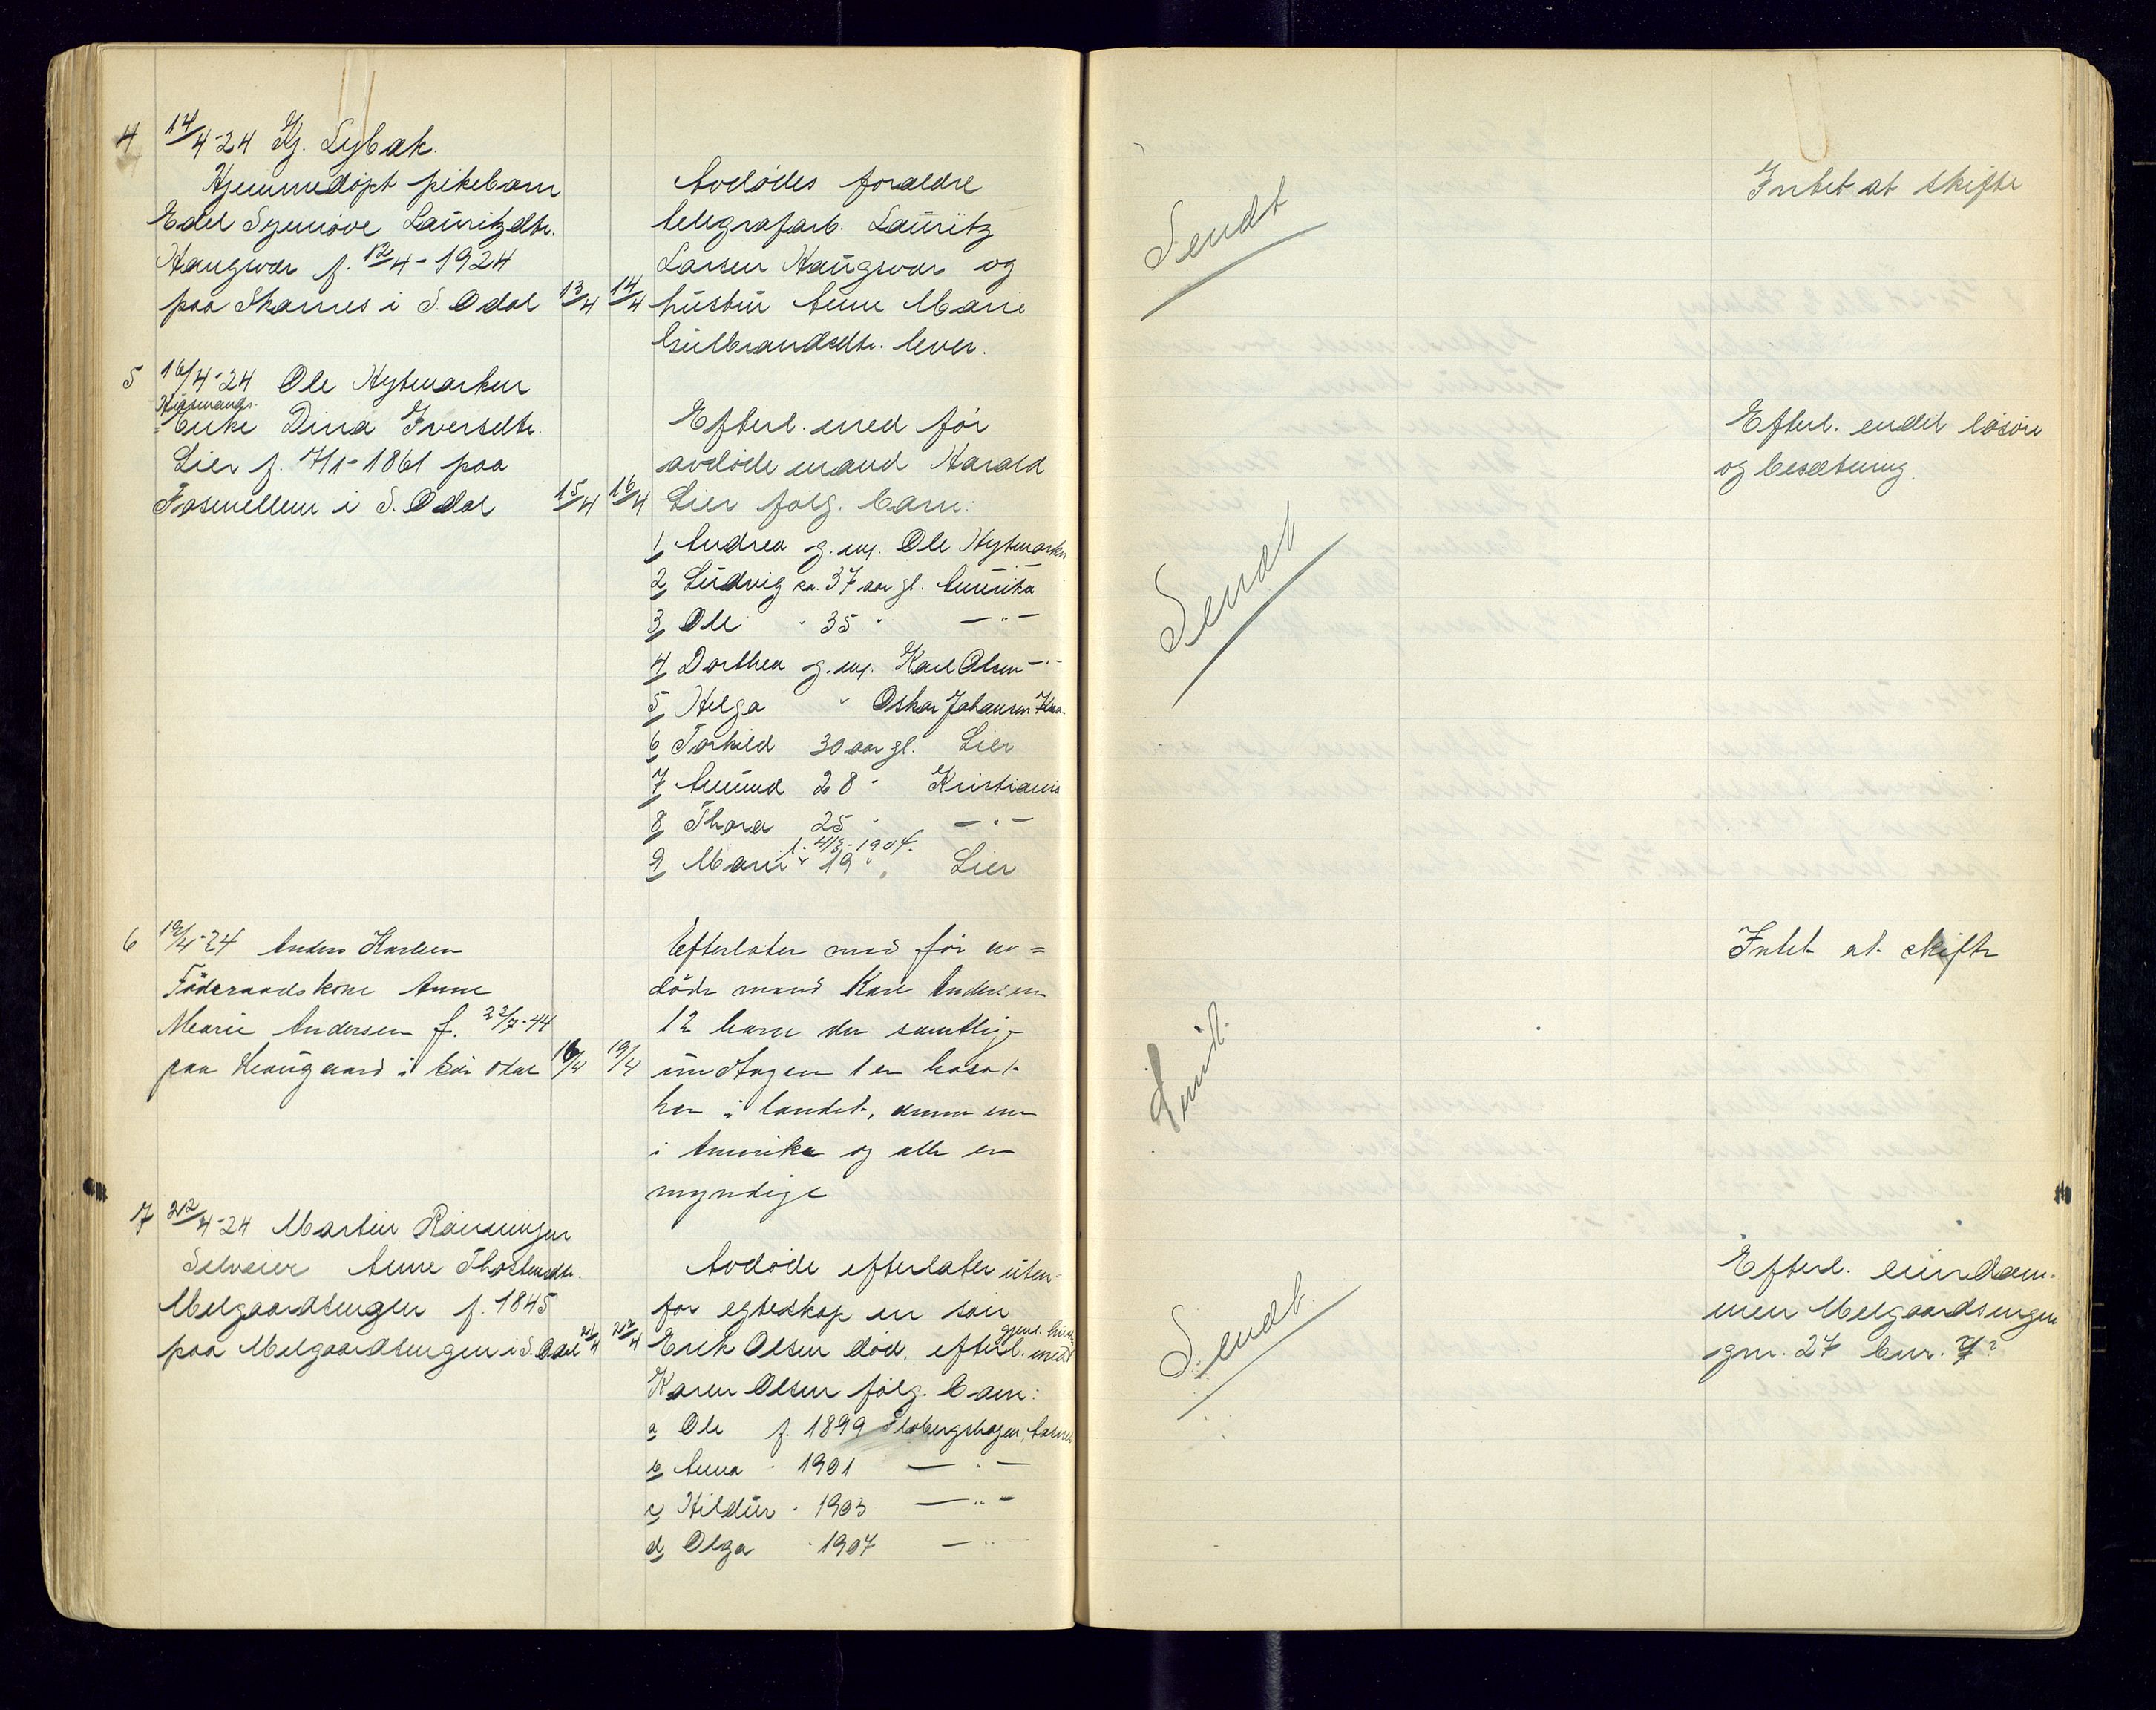 4 14/4-24 Kj. Sybak.
Hjemmedøpt pikebarn
Edel Synnøve Lauritzdtr.
Haugsvær f. 12/4-1924
paa Skarnes i S. Odal 13/4 14/4
Avdødes foraldre
telegrafarb. Lauritz
Larsen Haugsvær og
hustru Anne Marie
Gulbrandsdtr. lever.
Sendt
Intet at skifte
5 16/4-24 Ole Nytmarken
Enke Dina Iversdtr.
Lier f. 7/1-1861 paa
i S. Odal 15/4 16/4
Efterl. med før
avdøde mand Harald
Lier følg. barn:
1, Andrea g.m. Ole Nytmarken
2, Ludvig ca. 37 aar gl. Amerika
3, Ole " 35 " —"—
4, Dorthea g.m. Karl Olsen —"—
5, Helga " Oskar Johansen
6, Torkild 30 aar gl. Lier
7, Amund 28 " Kristiania
8, Thora 25 " —"—
f. 4/3-1904.
9, Marie " 19 " Lier
Sendt
Efterl. endel løsøre
og besætning.
6 19/4-24 Anders Karlsen
Föderaadskone Anne
Marie Andersen f. 22/7-44
paa i Sör Odal 16/4 19/4
Efterlater med för av=
döde mand Karl Andersen
12 barn der samtlige
undtagen 1 er bosat
her i landet, denne ene
i Amerika og alle er
myndige
Sendt
Intet at skifte
7 22/4-24 Martin Rønningen
Selveier Anne Thostensdtr.
Melgaardsengen f. 1845
paa Melgaardsengen i S. Odal 21/4 22/4
Avdøde efterlater uten-
for egteskap en søn
Erik Olsen død, efterl. med
gjenl.
Karen Olsen følg. barn:
a, Ole f. 1899
b, Anna " 1901 —"—
c, Hildur " 1903 —"—
d, Olga " 1907 —"—
Sendt
Efterl. eiendom-
men Melgaardsengen
gnr. 27 bnr. 7?